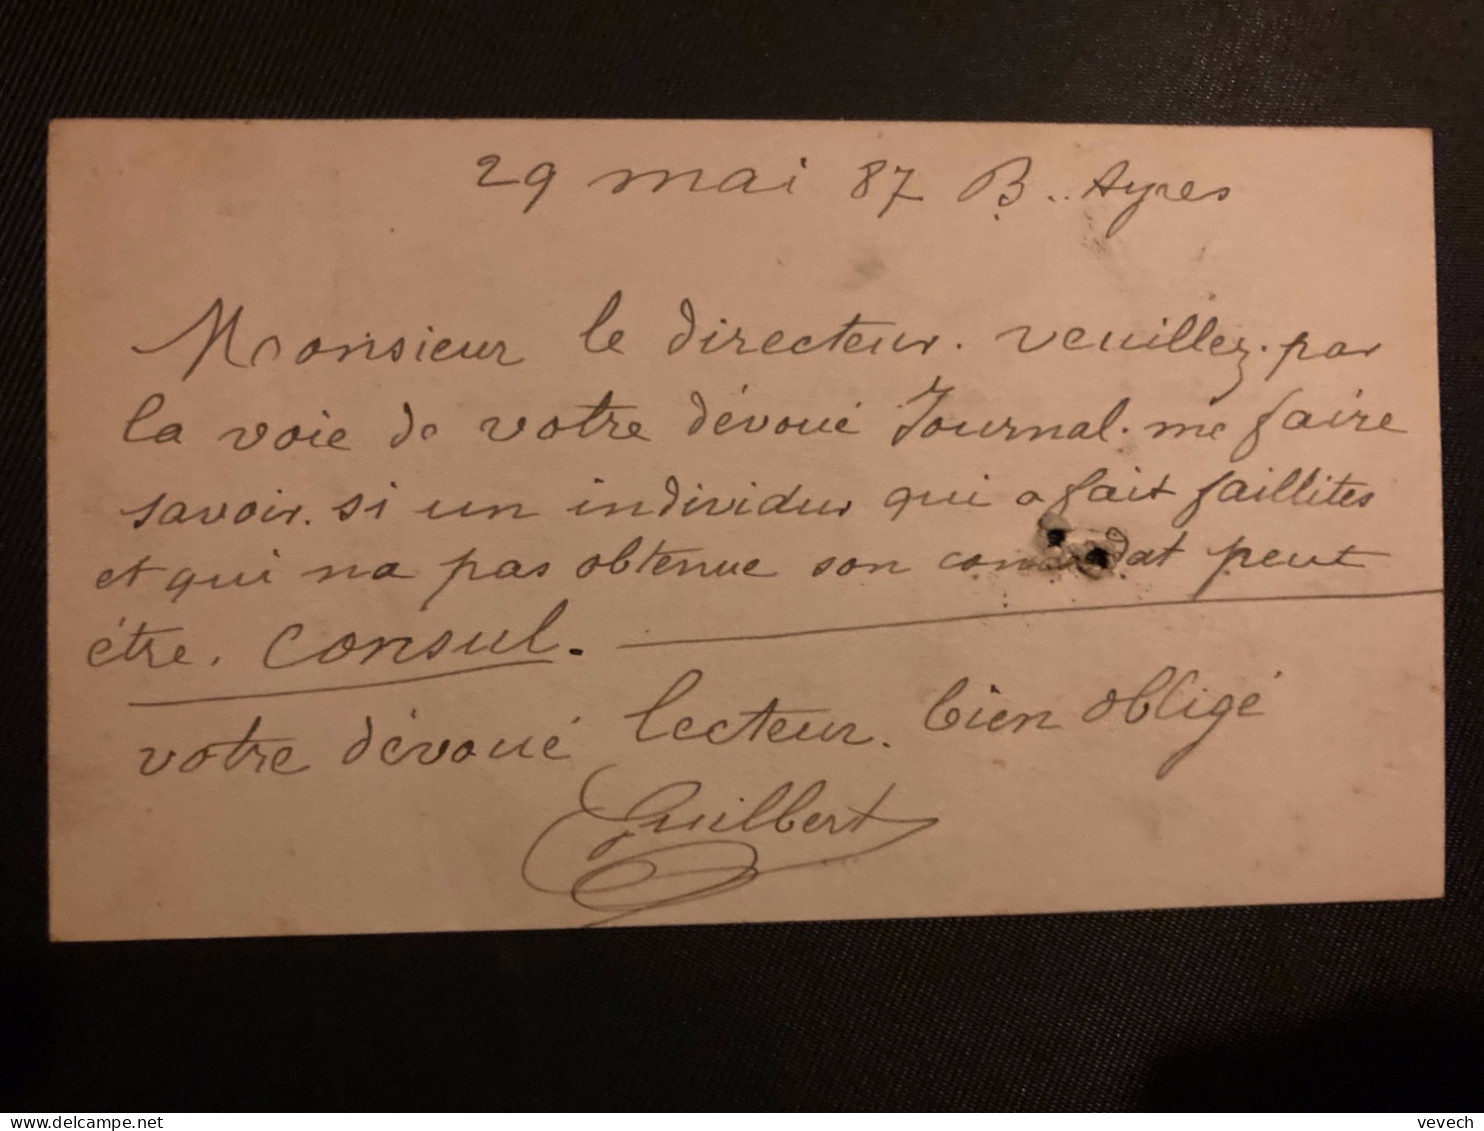 29 mai 87 B.. Ayres
Monsieur le directeur. veuillez. par
la voie de votre dévoué Journal. me faire
savoir. si un individus qui a fait faillites
et qui na pas obtenue son peut
étre. Consul.
votre dévoué lecteur. bien obligé
Guilbert
vevech